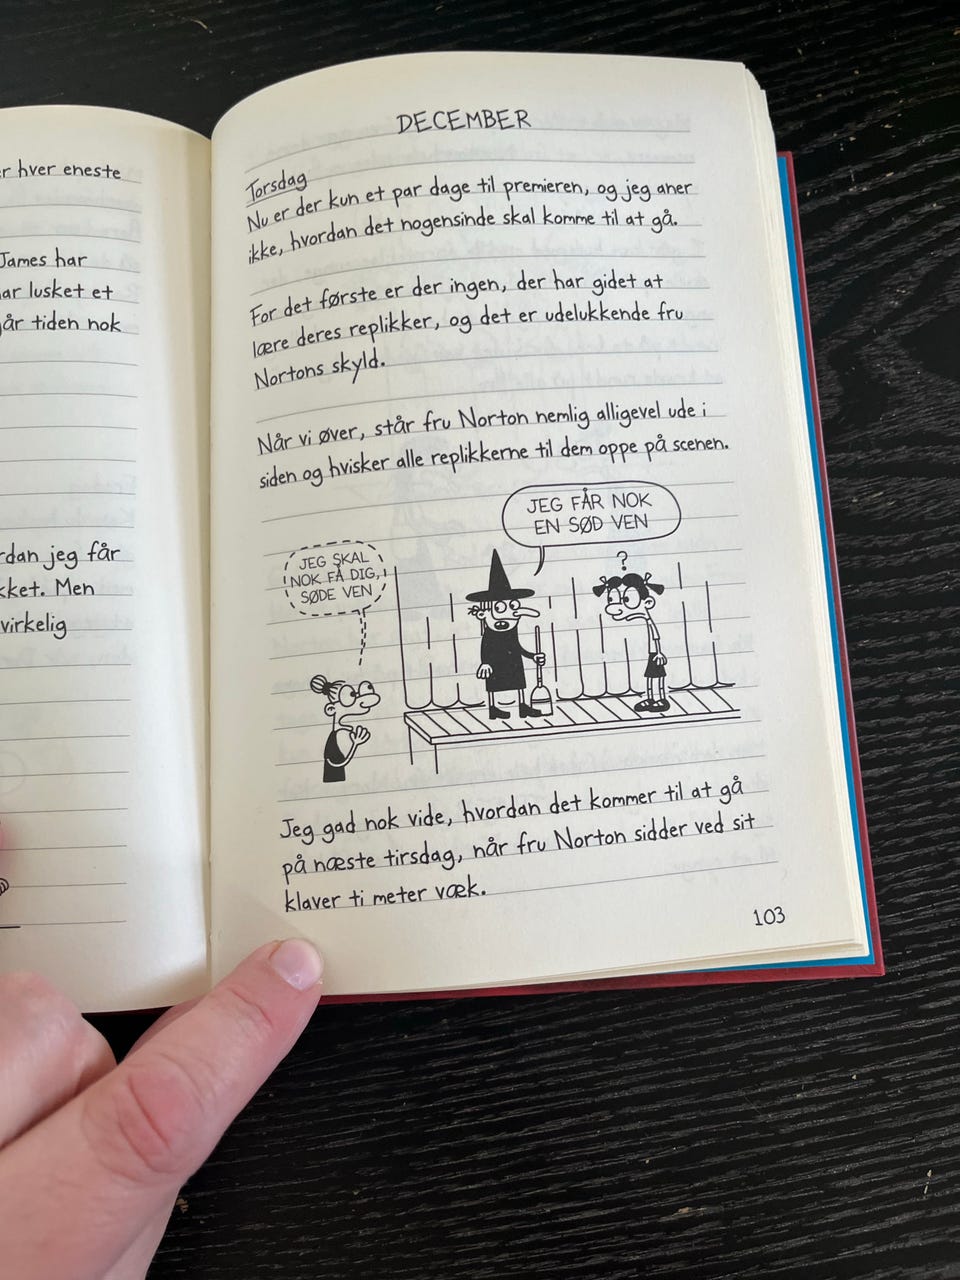 r hver eneste
James har
ar lusket et
går tiden nok
rdan jeg får
kket. Men
virkelig
DECEMBER
Torsdag
Nu er der kun et par dage til premieren, og jeg aner
ikke, hvordan det nogensinde skal komme til at gå.
For det første er der ingen, der har gidet at
lære deres replikker, og det er udelukkende fru
Nortons skyld.
Når vi øver, står fru Norton nemlig alligevel ude i
siden og hvisker alle replikkerne til dem oppe på scenen.
JEG FÅR NOK
EN SØD VEN
JEG SKAL
NOK FÅ DIG,
SØDE VEN
?
Jeg gad nok vide, hvordan det kommer til at gå
på næste tirsdag, når fru Norton sidder ved sit
klaver ti meter væk.
103